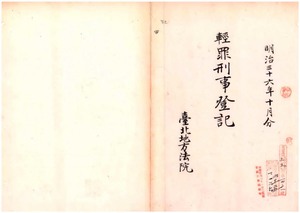 明治三十六年十月分
輕罪刑事登記
臺北地方法院